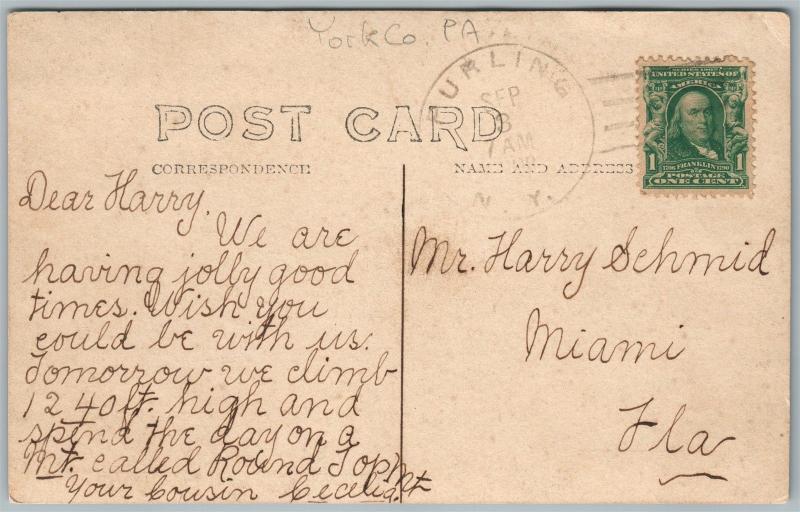 York Co. PA
PURLING
SEP
8
7 AM
N. Y.
POST CARD
CORRESPONDENCE
NAME AND ADDRESS
SERIES 1902
UNITED STATES OF
AMERICA
1706 FRANKLIN 1790
1 1
POSTAGE
ONE CENT
Dear Harry,
We are
having jolly good
times. Wish you
could be with us.
Tomorrow we climb
1240 ft. high and
spend the day on a
Mt. called Round Top Mt
Your Cousin
Mr. Harry Schmid
Miami
Fla